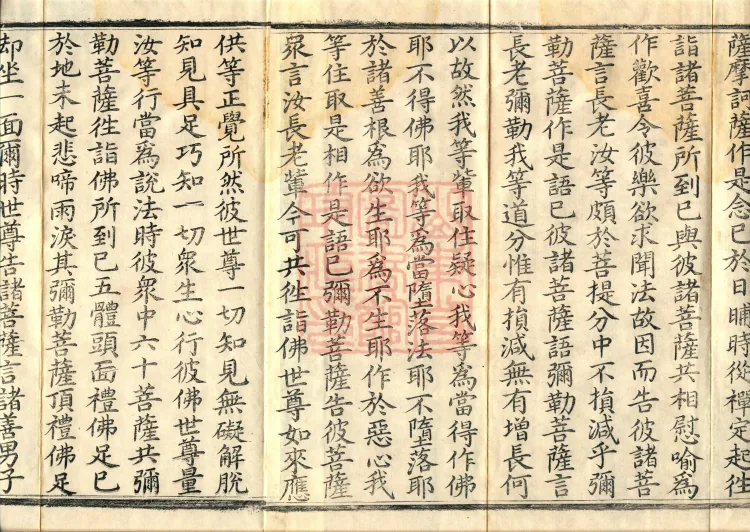 薩摩訶薩作是念已於日晡時從禪定起徃
詣諸菩薩所到已與彼諸菩薩共相慰喻爲
作歡喜令彼樂欲求聞法故因而告彼諸菩
薩言長老汝等頗於菩提分中不損減乎彌
勒菩薩作是語已彼諸菩薩語彌勒菩薩言
長老彌勒我等道分惟有損減無有增長何
以故然我等輩取住疑心我等爲當得作佛
耶不得佛耶我等爲當墮落法耶不墮落耶
於諸善根爲欲生耶爲不生耶作於惡心我
等住取是相作是語已彌勒菩薩告彼菩薩
衆言汝長老輩今可共徃詣佛世尊如來應
供等正覺所然彼世尊一切知見無礙解脫
知見具足巧知一切衆生心行彼佛世尊量
汝等行當爲說法時彼衆中六十菩薩共彌
勒菩薩徃詣佛所到已五體頭面禮佛足已
於地未起悲啼雨淚其彌勒菩薩頂禮佛足
却坐一面爾時世尊告諸菩薩言諸善男子